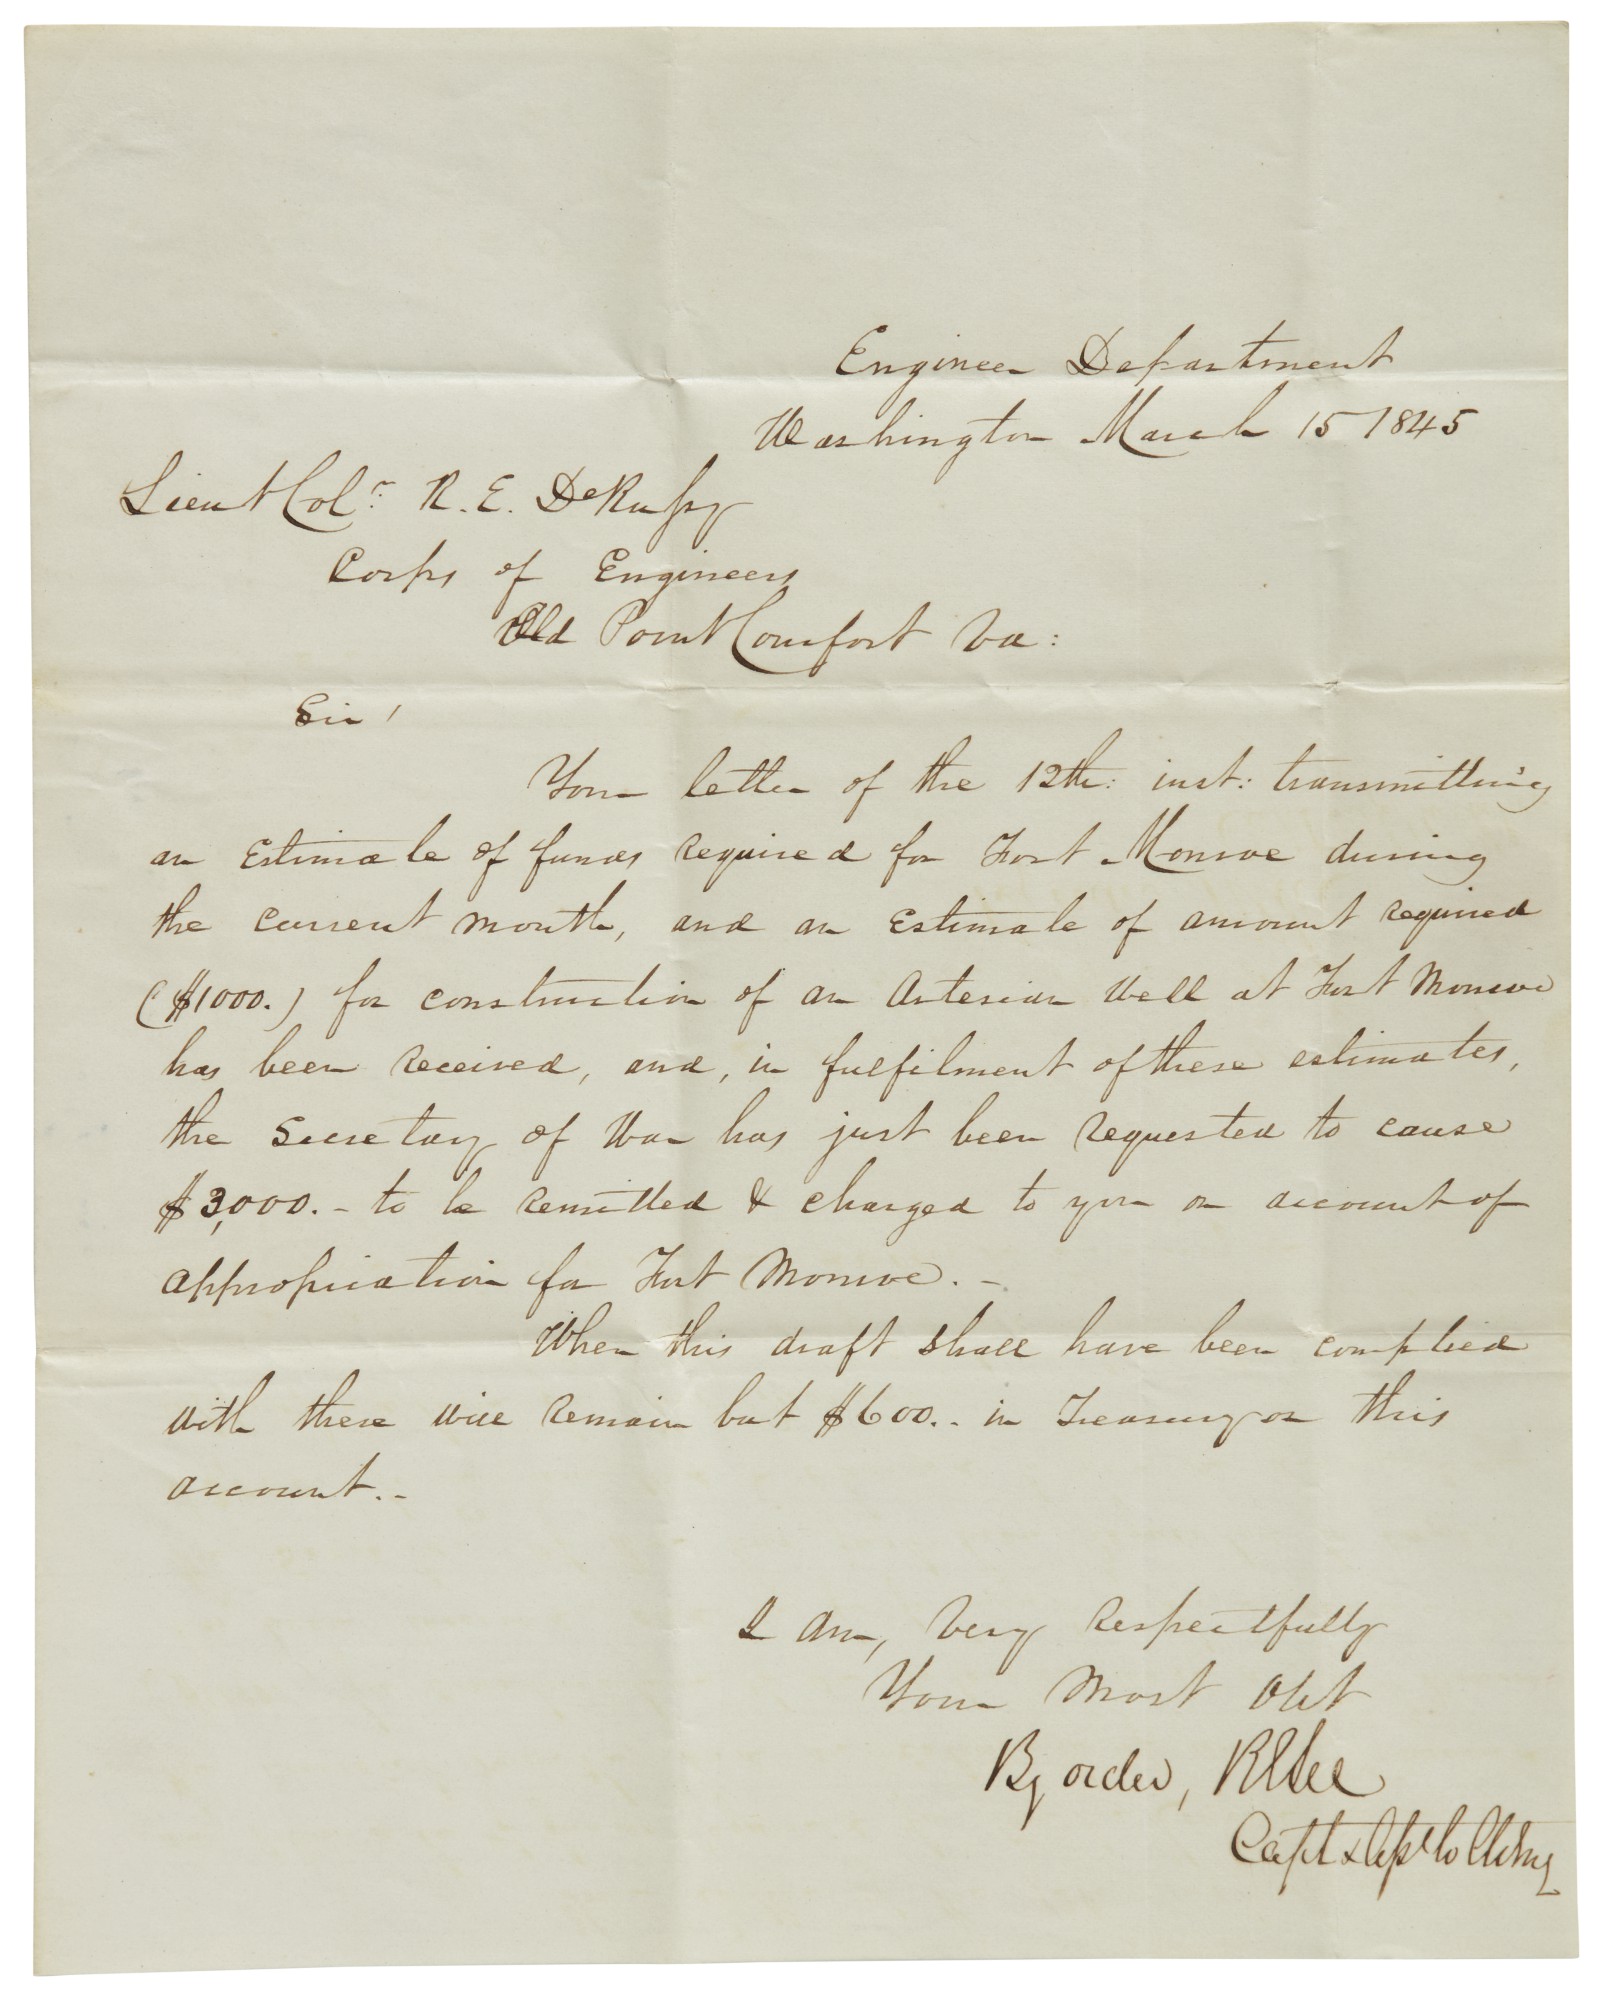 Engineer Department
Washington March 15 1845
Lieut Col.r R. E. DeRussy
Corps of Engineers
Old Point Comfort Va:
Sir!
Your letter of the 12th: inst: transmitting
an Estimate of funds required for Fort Monroe during
the current month, and an Estimate of amount required
($1000.) for construction of an Artesian Well at Fort Monroe
has been received, and, in fulfilment of these estimates,
the Secretary of War has just been requested to cause
$3,000.- to be remitted & charged to you on account of
appropriation for Fort Monroe.-
When this draft shall have been complied
with there will remain but $600.- in Treasury on this
account.-
I am, Very respectfully
Your Most Obt
By order, R E Lee
Capt & Asst to Ch Eng